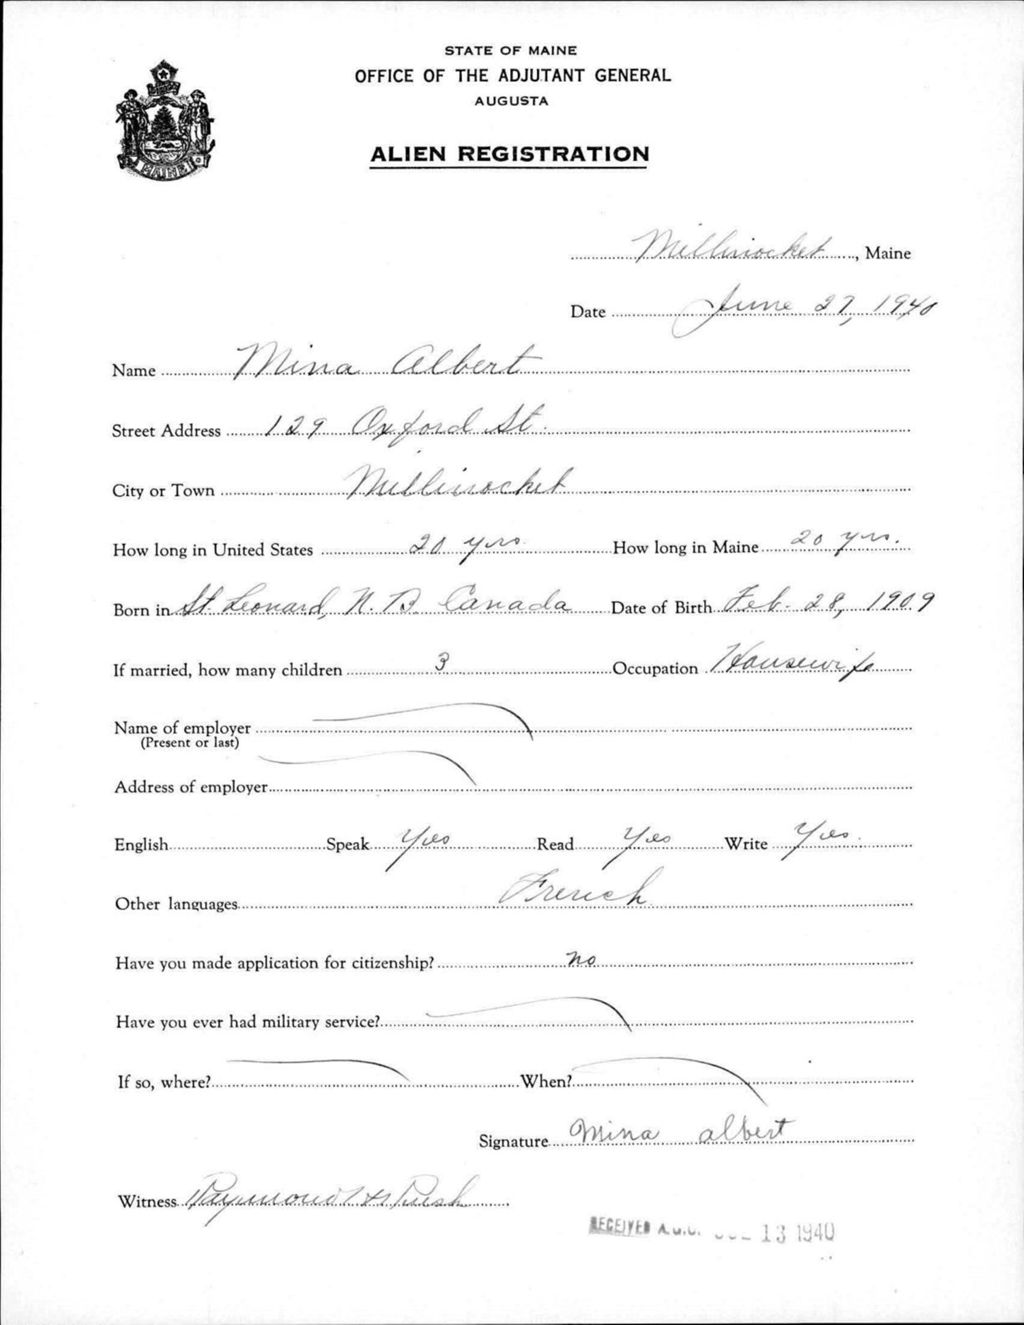 STATE OF MAINE
OFFICE OF THE ADJUTANT GENERAL
AUGUSTA
ALIEN REGISTRATION
MAINE
Millinocket, Maine
Date June 27, 1940
Name Mina Albert
Street Address 129 Oxford St.
City or Town Millinocket
How long in United States 20 yrs. How long in Maine 20 yrs.
Born in St Leonard, N. B. Canada Date of Birth Feb. 28, 1909
If married, how many children 3 Occupation Housewife
Name of employer
(Present or last)
Address of employer
English Speak Yes Read Yes Write Yes.
Other languages French
Have you made application for citizenship? no
Have you ever had military service?
If so, where? When?
Signature Mina albert
Witness Raymond H Rush
RECEIVED A.G.O. 13 1940